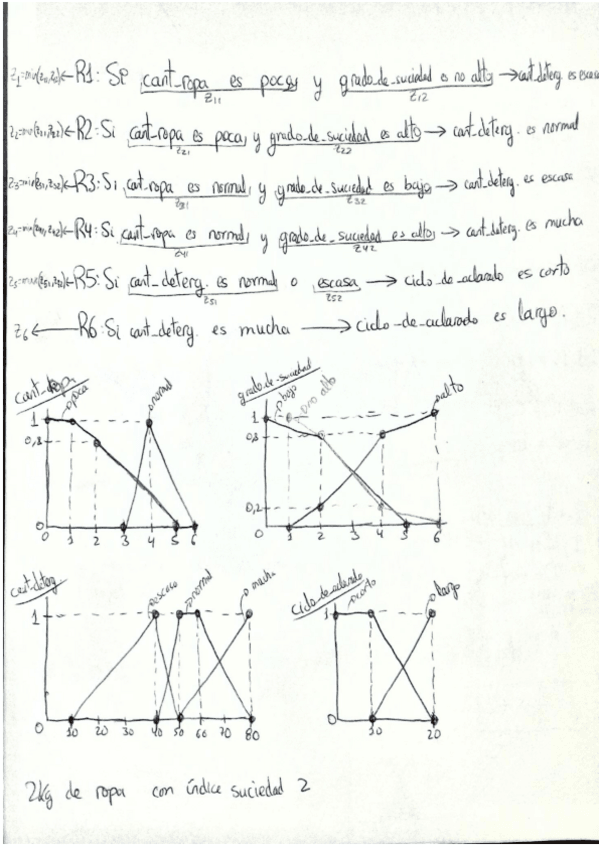 z1=min(z11,z12)←R1: Si cant_ropa es poca y grado_de_suciedad es no alto → cant_deterg es escasa
z11 z12
z2=min(z21,z22)←R2: Si cant_ropa es poca y grado_de_suciedad es alto → cant_deterg. es normal
z21 z22
z3=min(z31,z32)←R3: Si cant_ropa es normal y grado_de_suciedad es bajo → cant_deterg. es escasa
z31 z32
z4=min(z41,z42)←R4: Si cant_ropa es normal y grado_de_suciedad es alto → cant_deterg. es mucha
z41 z42
R5: Si cant_deterg. es normal o escasa → ciclo_de_aclarado es corto
z51 z52
z6 ← R6: Si cant_deterg. es mucha → ciclo-de-aclarado es largo.
cant_ropa poca normal
1
0,8
0
0 1 2 3 4 5 6
grado_de_suciedad bajo no alto alto
1
0,8
0,2
0
0 1 2 3 4 5 6
cant_deterg escasa normal mucha
1
0
10 20 30 40 50 60 70 80
ciclo_de_aclarado corto largo
1
0
10 20
2kg de ropa con índice suciedad 2